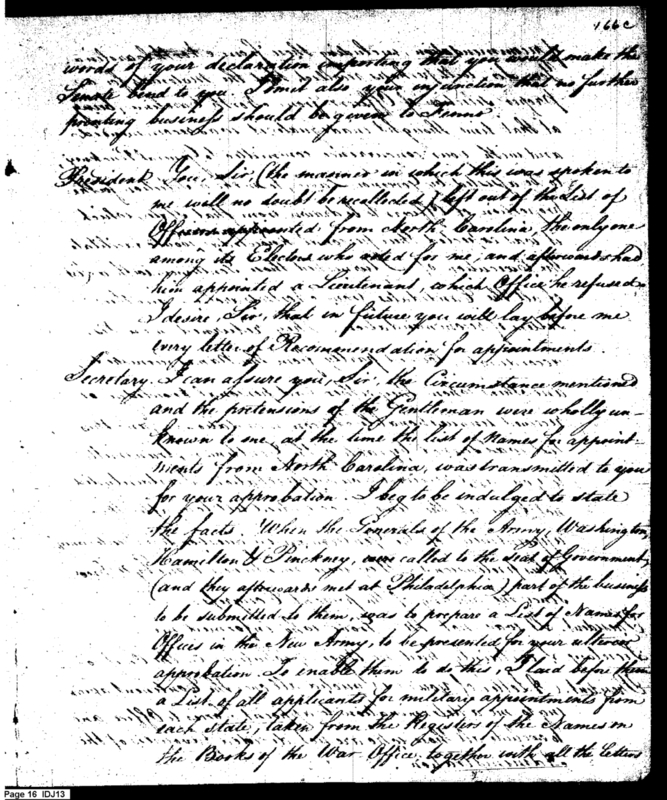 166c
words of your declaration importing that you would make the
Senate bend to you. I met also your injunction that no further
printing business should be given to Fenno
President You, Sir, (the manner in which this was spoken to
me will no doubt be recollected) left out of the List of
Officers appointed from North Carolina, the only one
among its Electors who voted for me, and afterwards had
him appointed a Lieutenant, which Office he refused
I desire, Sir, that in future you will lay before me
every letter of Recommendation for appointments.
Secretary. I can assure you, Sir, the Circumstance mentioned
and the pretensions of the Gentleman were wholly un-
known to me, at the time the list of Names for appoint-
ments from North Carolina, was transmitted to you
for your approbation. I beg to be indulged to state
the facts. When the Generals of the Army, Washington,
Hamilton & Pinckney, were called to the Seat of Government,
(and they afterwards met at Philadelphia) part of the business
to be submitted to them, was to prepare a List of Names for
Offices in the New Army, to be presented for your ulterior
approbation. To enable them to do this, I laid before them
a List of all applicants for military appointments from
each State, taken from the Registers of the Names on
the Books of the War Office, together with all the Letters
Page 16 IDJ13